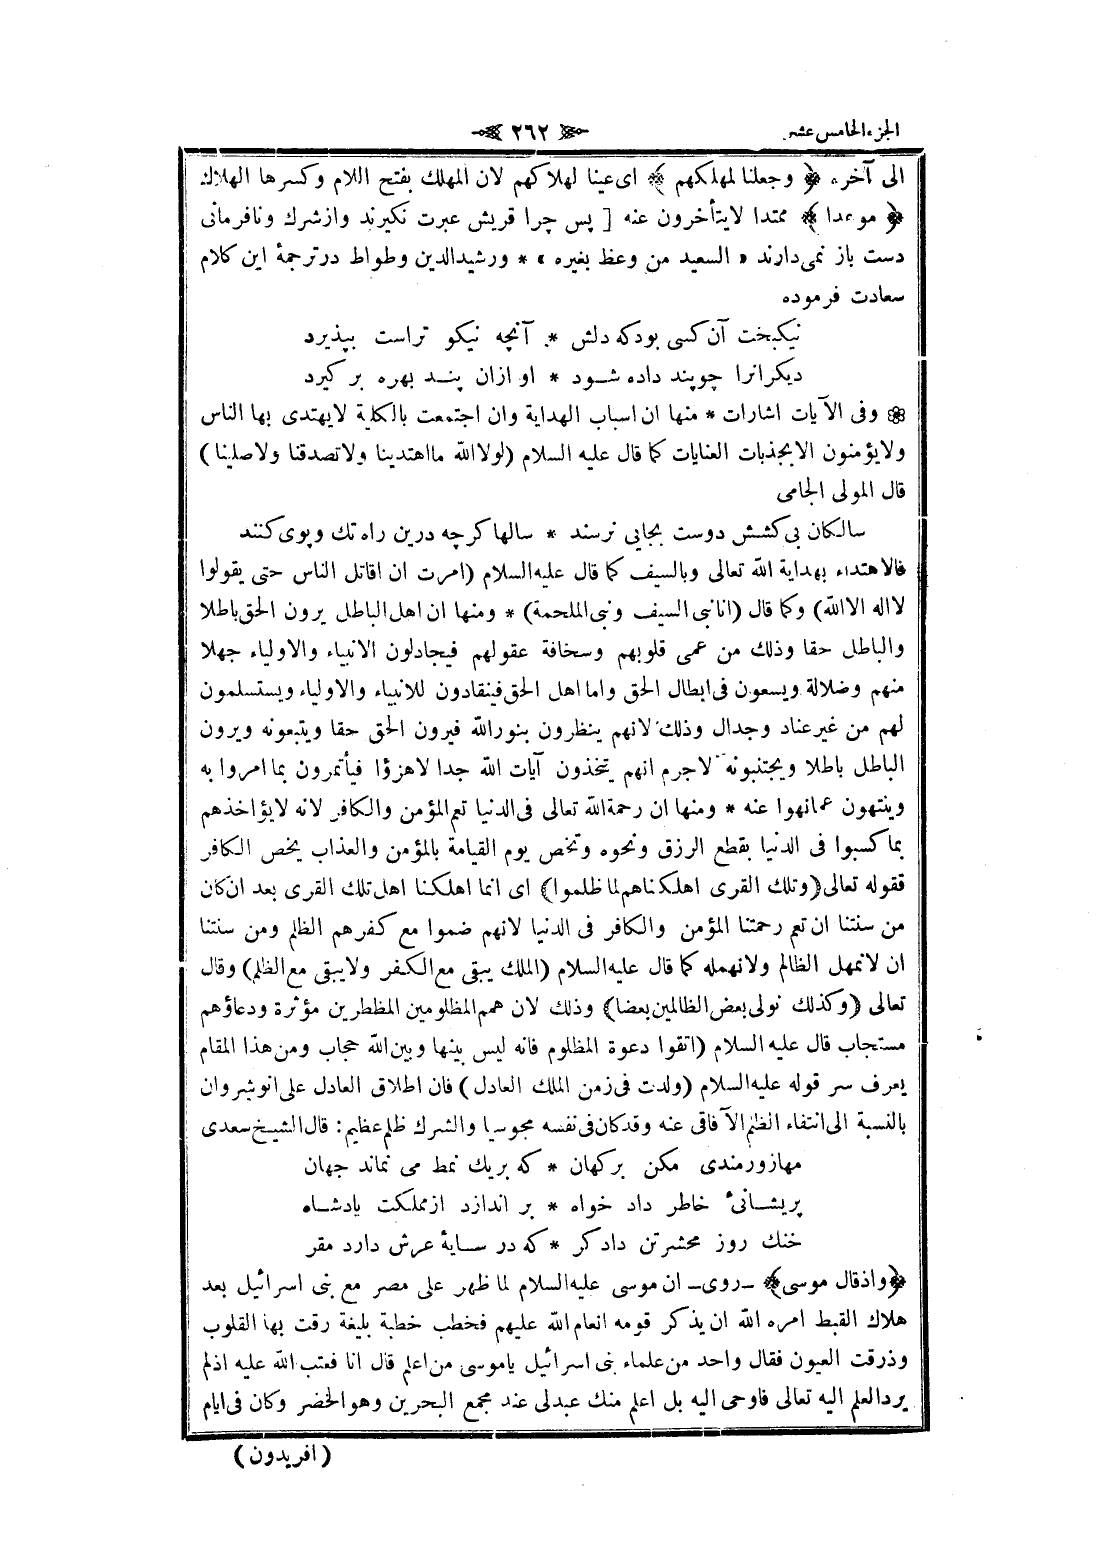 الجزء الخامس عشر
٢٦٢
الى آخره ﴿ وجعلنا لمهلكهم ﴾ اى عينا لهلاكهم لان المهلك بفتح اللام وكسرها الهلاك
﴿ موعدا ﴾ ممتدا لايتأخرون عنه [ پس چرا قريش عبرت نكيرند وازشرك ونافرمانى
دست باز نمى‌دارند « السعيد من وعظ بغيره » * ورشيدالدين وطواط درترجمهٔ اين كلام
سعادت فرموده
نيكبخت آن كسى بودكه دلش * آنچه نيكو تراست بپذيرد
ديكرانرا چوپند داده شــود * او ازان پنــد بهره بر كيرد
وفى الآيات اشارات * منها ان اسباب الهداية وان اجتمعت بالكلية لايهتدى بها الناس
ولايؤمنون الابجذبات العنايات كما قال عليه السلام (لولاالله مااهتدينا ولاتصدقنا ولاصلينا)
قال المولى الجامى
سالكان بى‌كشش دوست بجايى نرسند * سالها كرچه درين راه تك وپوى كنند
فالاهتداء بهداية الله تعالى وبالسيف كما قال عليه‌السلام (امرت ان اقاتل الناس حتى يقولوا
لااله الاالله) وكما قال (انانبى السيف ونبى الملحمة) * ومنها ان اهل الباطل يرون الحق باطلا
والباطل حقا وذلك من عمى قلوبهم وسخافة عقولهم فيجادلون الانبياء والاولياء جهلا
منهم وضلالة ويسعون فى ابطال الحق واما اهل الحق فينقادون للانبياء والاولياء ويستسلمون
لهم من غير عناد وجدال وذلك لانهم ينظرون بنورالله فيرون الحق حقا ويتبعونه ويرون
الباطل باطلا ويجتنبونه لاجرم انهم يتخذون آيات الله جدا لاهزؤا فيأتمرون بما امروا به
وينتهون عمانهوا عنه * ومنها ان رحمةالله تعالى فى الدنيا تعم المؤمن والكافر لانه لايؤاخذهم
بما كسبوا فى الدنيا بقطع الرزق ونحوه وتخص يوم القيامة بالمؤمن والعذاب يخص الكافر
فقوله تعالى (وتلك القرى اهلكناهم لما ظلموا) اى انما اهلكنا اهل تلك القرى بعد ان كان
من سنتنا ان تعم رحمتنا المؤمن والكافر فى الدنيا لانهم ضموا مع كفرهم الظلم ومن سنتنا
ان لانمهل الظالم ولانهمله كما قال عليه‌السلام (الملك يبقى مع الكفر ولايبقى مع الظلم) وقال
تعالى (وكذلك نولى بعض الظالمين بعضا) وذلك لان همم المظلومين المظطرين مؤثرة ودعاؤهم
مستجاب قال عليه السلام (اتقوا دعوة المظلوم فانه ليس بينها وبين الله حجاب ومن هذا المقام
يعرف سر قوله عليه‌السلام (ولدت فى زمن الملك العادل) فان اطلاق العادل على انوشروان
بالنسبة الى انتفاء الظلم الآفاقى عنه وقدكان فى نفسه مجوسيا والشرك ظلم عظيم : قال الشيخ سعدى
مهازورمندى مكن بركهان * كه بريك نمط مى نماند جهان
پريشانىٔ خاطر داد خواه * بر اندازد ازمملكت پادشــاه
خنك روز محشرتن دادكر * كه در ســايهٔ عرش دارد مقر
﴿ واذقال موسى ﴾ ــ روى ــ ان موسى عليه‌السلام لما ظهر على مصر مع بنى اسرائيل بعد
هلاك القبط امره الله ان يذكر قومه انعام الله عليهم فخطب خطبة بليغة رقت بها القلوب
وذرقت العيون فقال واحد من علماء بنى اسرائيل ياموسى من اعلم قال انا فعتب الله عليه اذلم
يرد العلم اليه تعالى فاوحى اليه بل اعلم منك عبدلى عند مجمع البحرين وهو الخضر وكان فى ايام
( افريدون )